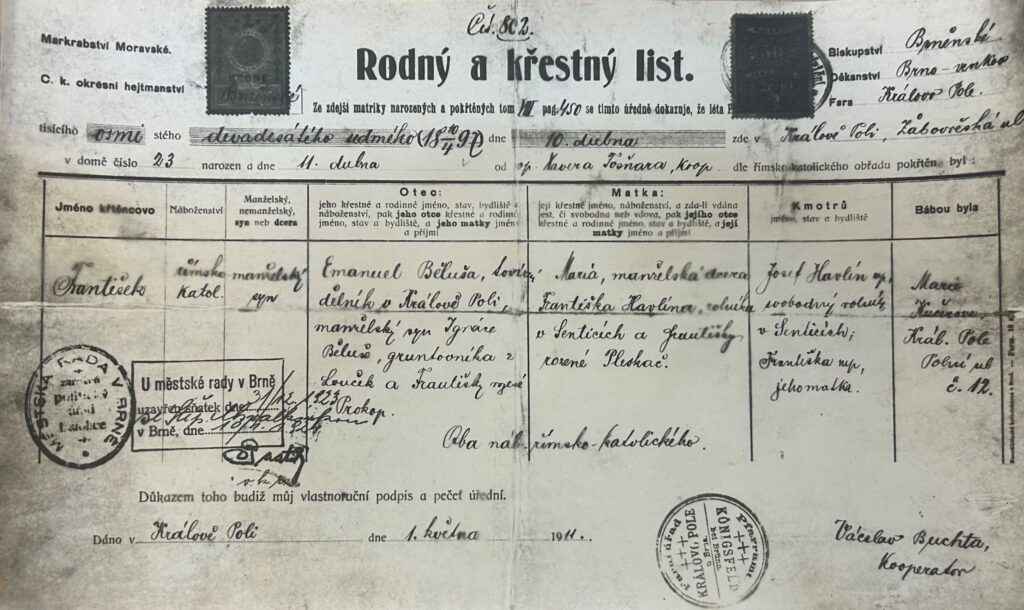 Čís. 802.
Markrabství Moravské.
C. k. okresní hejtmanství
Rodný a křestný list.
Biskupství Brněnské
Děkanství Brno-venkov
Fara Králově Pole.
Ze zdejší matriky narozených a pokřtěných tom VIII pag. 450 se tímto úředně dokazuje, že léta
tisícího osmi stého devadesátého sedmého (18 10/4 97) dne 10. dubna zde v Králově Poli, Žabovřeská ul
v domě číslo 23 narozen a dne 11. dubna od Xavera koop. dle římsko-katolického obřadu pokřtěn byl:
Jméno křtěncovo
Náboženství
Manželský,
nemanželský,
syn neb dcera
Otec:
jeho křestné a rodinné jméno, stav, bydliště a
náboženství, pak jeho otce křestné a rodinné
jméno, stav a bydliště, a jeho matky jméno
a příjmí
Matka:
její křestné jméno, náboženství, a zda-li vdána
jest, či svobodna neb vdova, pak jejího otce
křestné a rodinné jméno, stav a bydliště, a její
matky jméno a příjmí
Kmotrů
jméno, stav a bydliště
Bábou byla
František
římsko
katol.
manželský
syn
Emanuel Běluša, továr.
dělník v Králově Poli,
manželský syn Ignáce
Běluš, gruntovníka z
Louček a Františky rozené
Prokop.
Maria, manželská dcera
Františka Havlína, rolníka
v Senticích a Františky
rozené Pleskač.
Josef Havlín
svobodný rolník
v Senticích;
Františka
jeho matka.
Marie
Kučerova,
Král. Pole
Polní ul
č. 12.
Oba náb. římsko-katolického.
MĚSTSKÁ RADA V BRNĚ
U městské rady v Brně
uzavřen sňatek dne 31/12 1923
v Brně, dne
Důkazem toho budiž můj vlastnoruční podpis a pečeť úřední.
Dáno v Králově Poli dne 1. května 1911.
Farní úřad
KRÁLOVO POLE
u Brna
Pfarramt
KÖNIGSFELD
bei Brünn
Václav Buchta,
Kooperator